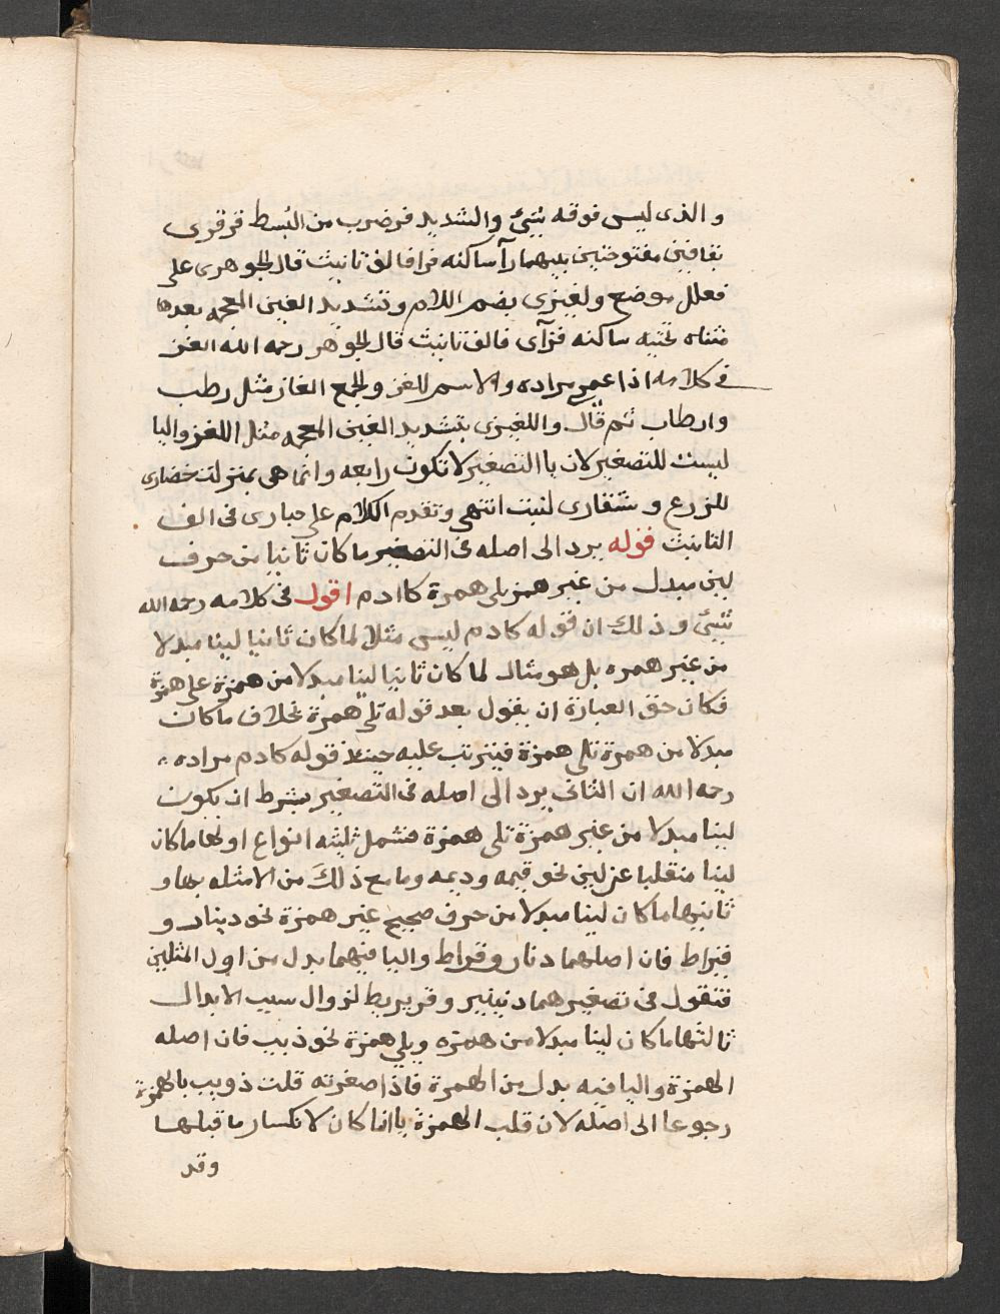 و الذى ليس فوقه شئ والشديد فى ضرب من البُسط قرقرى
بقافين مفتوحتين بينهما رآ ساكنه فرا فالف تانيث قال الجوهرى على
فعللى موضع ولغيزى بضم اللام وتشديد الغين المعجمه بعدها
مثناه تحتيه ساكنه فزآى فالف تانيث قال الجوهر رحمه الله الغز
فى كلامه اذا عمى مراده والاسم اللغز والجمع الغاز مثل رطب
وارطاب ثم قال واللغيزى بتشديد الغين المعجمه مثل اللغز واليا
ليست للتصغير لان يا التصغير لا تكون رابعه وانما هى بمنزلت خضارى
للزرع وشقارى لنبت انتهى وتقدم الكلام على حبارى فى الف
التانيث قوله يرد الى اصله فى التصغير ما كان ثانيا من حرف
لين مبدل من غير همز يلى همزة كاادم اقول فى كلامه رحمه الله
شئ وذلك ان قوله كادم ليس مثلا لما كان ثانيا لينا مبدلا
من غير همزه بل هو مثال لما كان ثانيا لينا مبدلا من همزة على همزة
فكان حق العبارة ان يقول بعد قوله تلى همزة بخلاف ما كان
مبدلا من همزة تلى همزة فيترتب عليه حينئذ قوله كادم مراده
رحمه الله ان الثانى يرد الى اصله فى التصغير بشرط ان يكون
لينا مبدلا من غير همزة تلى همزة فشمل ثلثه انواع اولها ما كان
لينا منقلبا عن لين نحو قيمه وديمه وما مع ذلك من الامثله بها و
ثانيها ما كان لينا مبدلا من حرف صحيح غير همزة نحو دينار و
قيراط فان اصلهما دنار وقراط واليا فيهما بدل من اول المثلين
فتقول فى تصغيرهما دنينير وقريريط لزوال سبب الابدال
ثالثها ما كان لينا مبدلا من همزه ويلى همزة نحو ذيب فان اصله
الهمزة واليا فيه بدل من الهمزة فاذا صغرته قلت ذويب بالهمزة
رجوعا الى اصله لان قلب الهمزة يا انما كان لانكسار ما قبلها
وقد